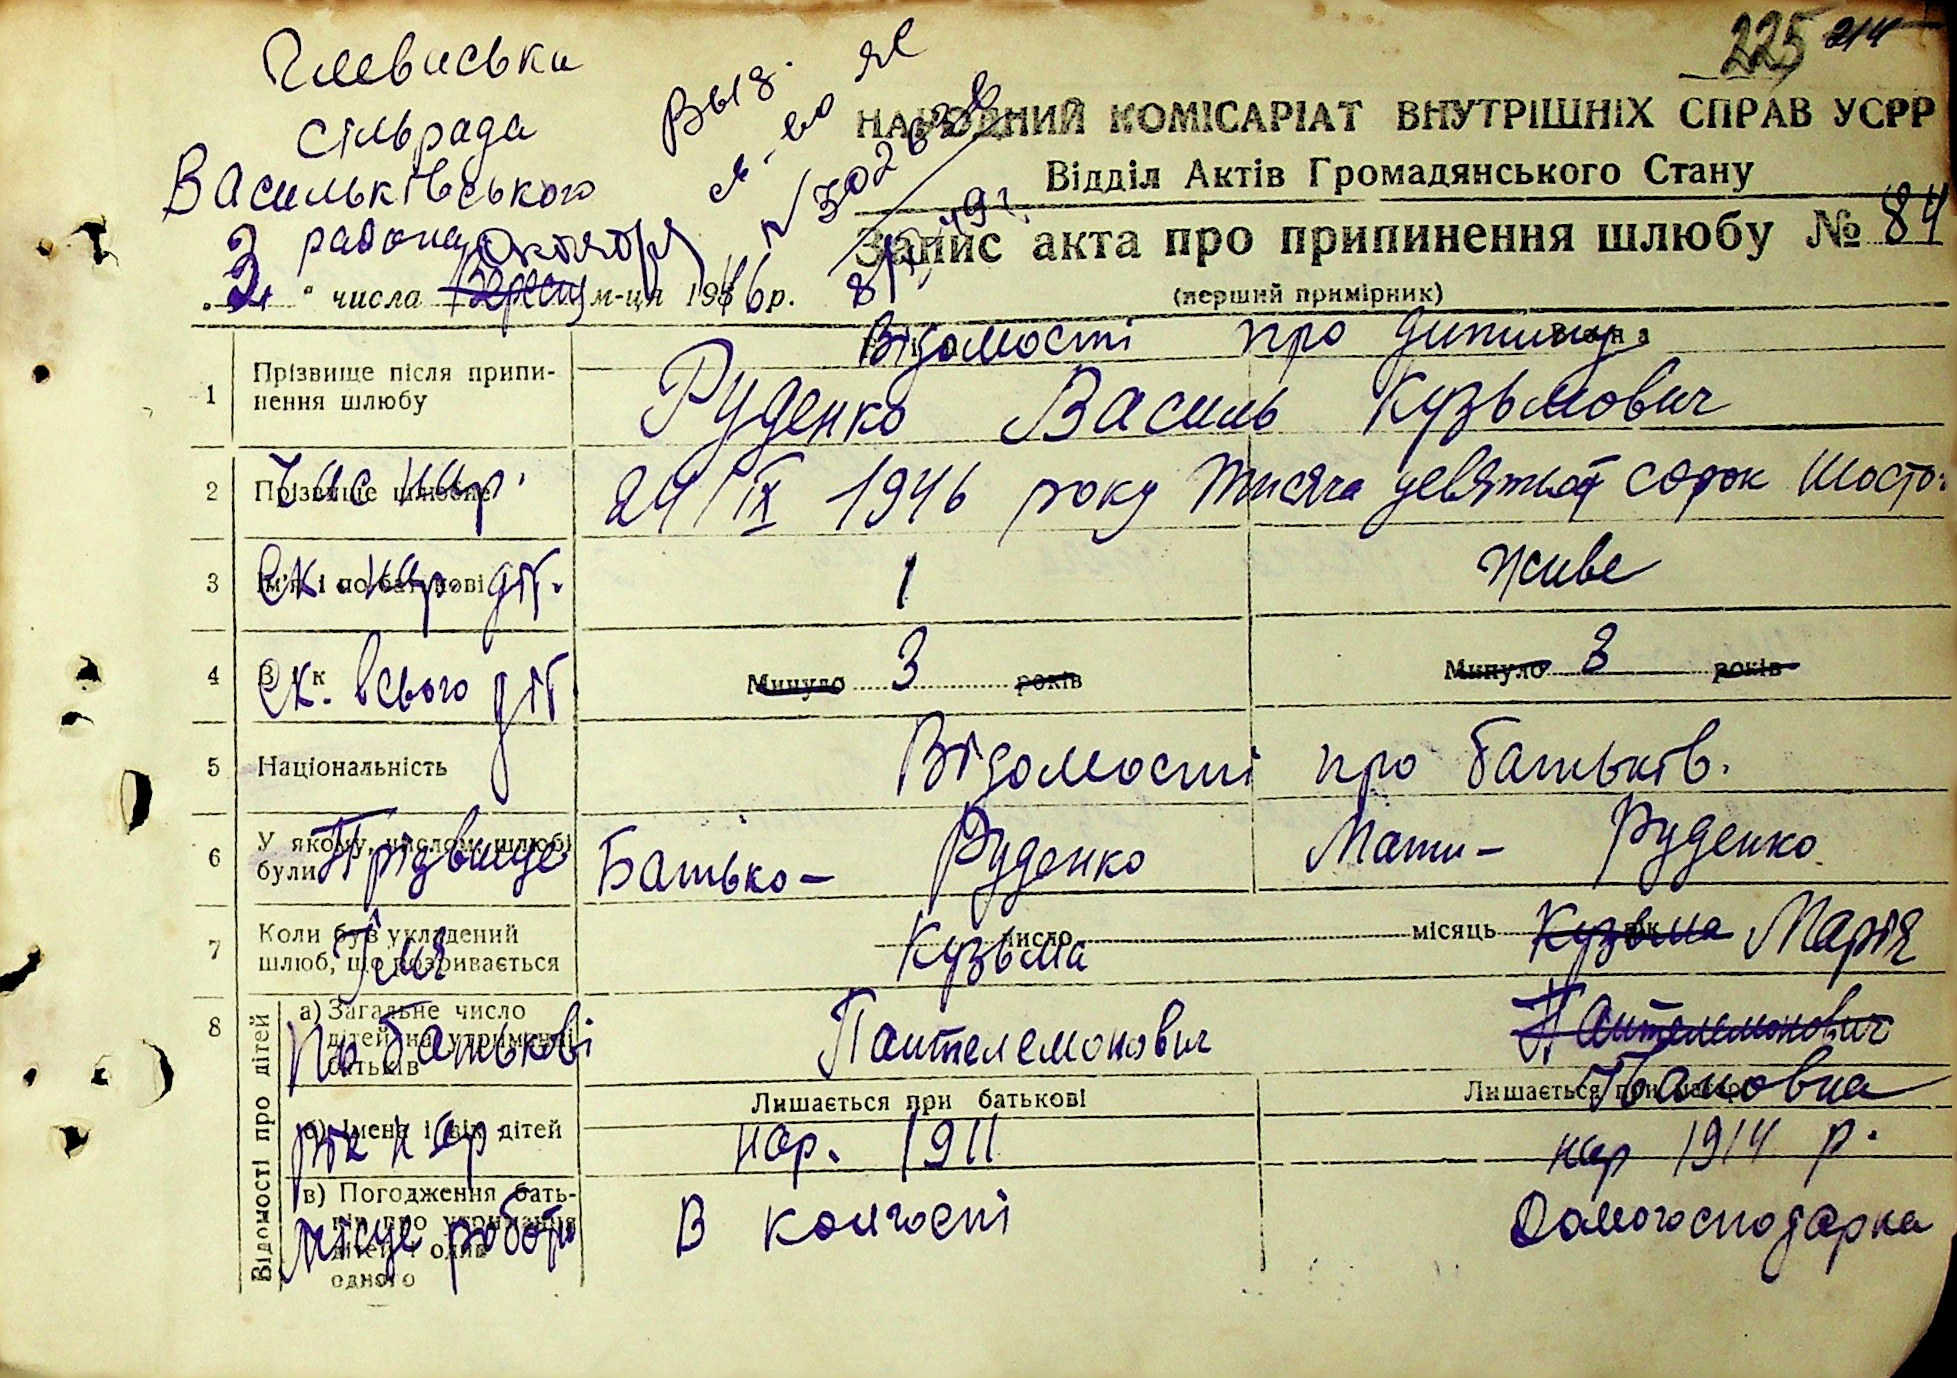 225 214
Глеваська
сільрада
Васильківського
района
Выд.
св-во ЯЕ
№ 302638
НАРОДНИЙ КОМІСАРІАТ ВНУТРІШНІХ СПРАВ УСРР
Відділ Актів Громадянського Стану
Запис акта про припинення шлюбу № 84
(перший примірник)
3 октября
числа м-ця 1946 р.
Відомості про дитину
1 Прізвище після припи-
нення шлюбу
Руденко Василь Кузьмович
2 Прізвище шлюбне
Час нар. 24/IX 1946 року тисяча девятсот сорок шосто.
3 Ім'я і по батькові
Ск. нар. діт. 1 Живе
4 Вік
Ск. всього діт Минуло 3 років Минуло 3 років
5 Національність Відомості про батьків.
6 У якому числом шлюбі
були
Прізвище Батько – Руденко Мати – Руденко
7 Коли був укладений
шлюб, що розривається
число місяць рік
Імя Кузьма Кузьма Марія
8 Відомості про дітей
а) Загальне число
дітей на утриманні
батьків
По батькові Пантелемонович Пантелемонович
Лишається при батькові Лишається при матері
б) Імена і вік дітей
рік нар. нар. 1911 нар 1914 р.
в) Погодження бать-
ків про утримання
дітей і один
одного
Місце роботи В колгоспі Домогосподарка